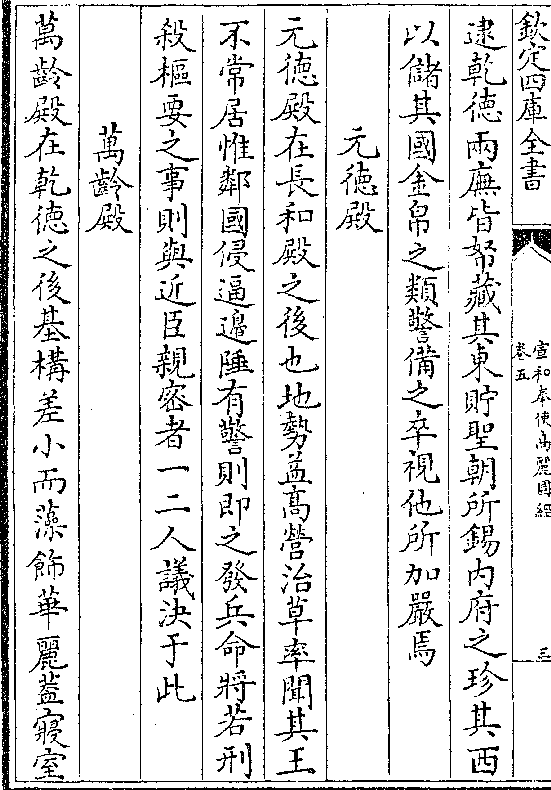 欽定四庫全書
宣和奉使高麗圖經
卷五
三
逮乾徳兩廡皆帑藏其東貯聖朝所錫内府之珍其西
以儲其國金帛之類警備之卒視他所加嚴焉
元徳殿
元徳殿在長和殿之後也地勢益髙營治草率聞其王
不常居惟鄰國侵逼邊陲有警則即之發兵命將若刑
殺樞要之事則與近臣親密者一二人議決于此
萬齡殿
萬齡殿在乾徳之後基構差小而藻飾華麗蓋寢室